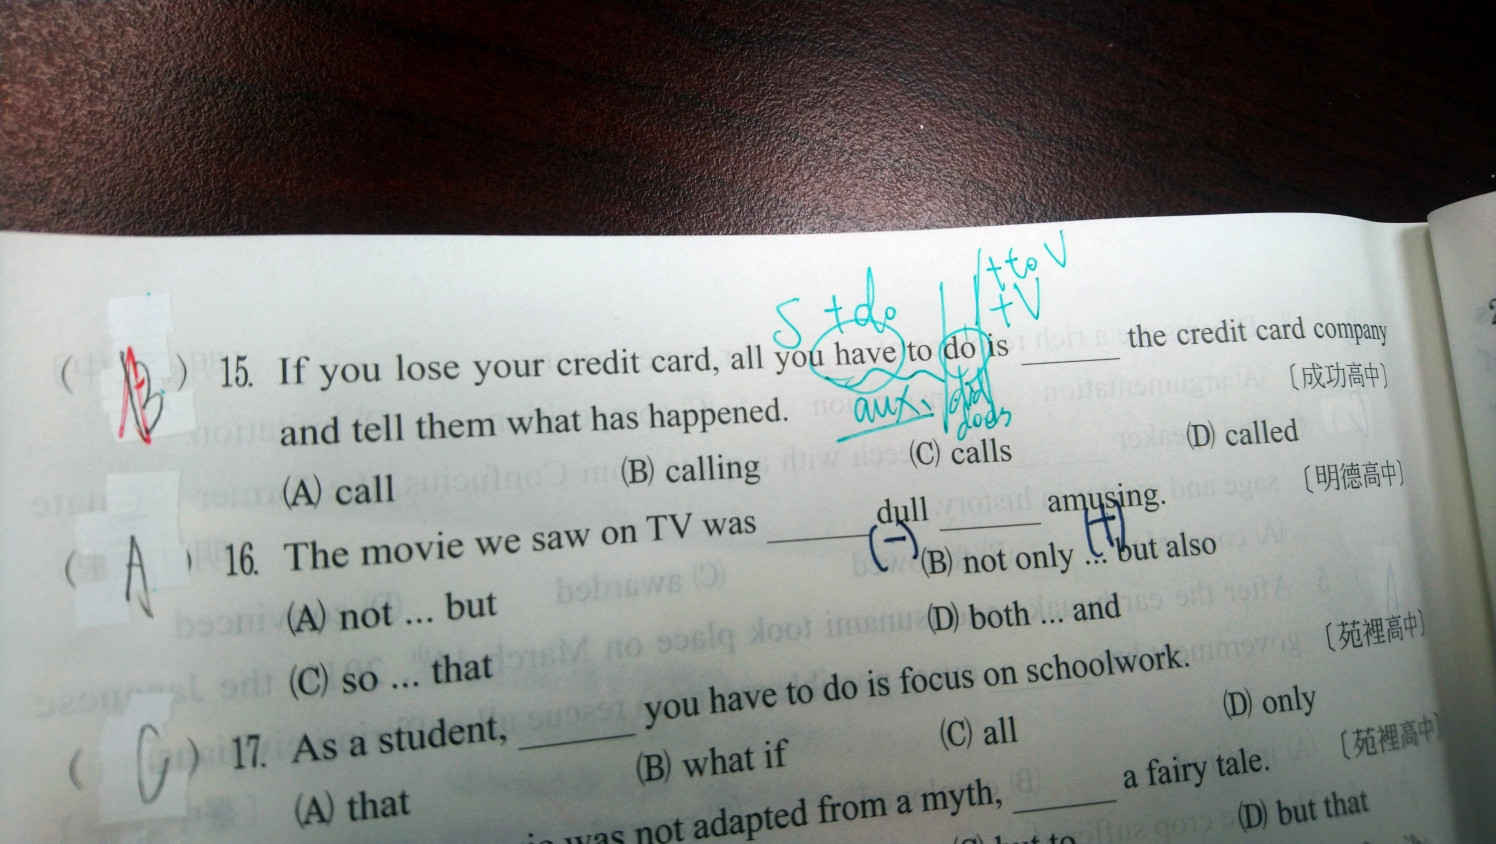 S + do / + to V
+ V
( A ) 15. If you lose your credit card, all you have to do is ______ the credit card company
and tell them what has happened. 〔成功高中〕
aux. did
does
(A) call (B) calling (C) calls (D) called
( A ) 16. The movie we saw on TV was ______ dull ______ amusing. 〔明德高中〕
(−) (+)
(A) not ... but (B) not only ... but also
(C) so ... that (D) both ... and
( C ) 17. As a student, ______ you have to do is focus on schoolwork. 〔苑裡高中〕
(A) that (B) what if (C) all (D) only
was not adapted from a myth, ______ a fairy tale. 〔苑裡高中〕
but to (D) but that